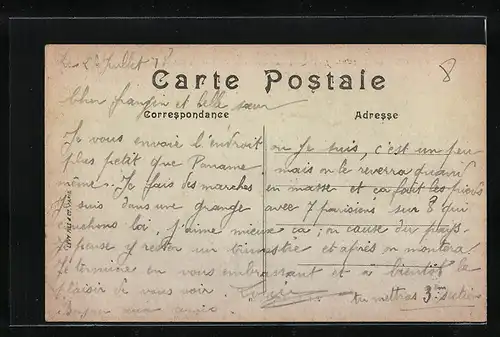 Le 22 Juillet 1
Carte Postale
8
Cher frangin et belle sœur
Correspondance
Adresse
Je vous envoie l'endroit ou je suis, c'est un peu
plus petit que Paname mais on le reverra quand
même. Je fais des marches en masse et ca fait les pieds
Je suis dans une grange avec 7 parisiens sur 8 qui
couchons loi, j'aime mieux ca; on cause du pays.
Je pense y rester un trimestre et après on montera!
Je termine en vous embrassant et a bientôt le
plaisir de vous voir.
tu mettras 3e section